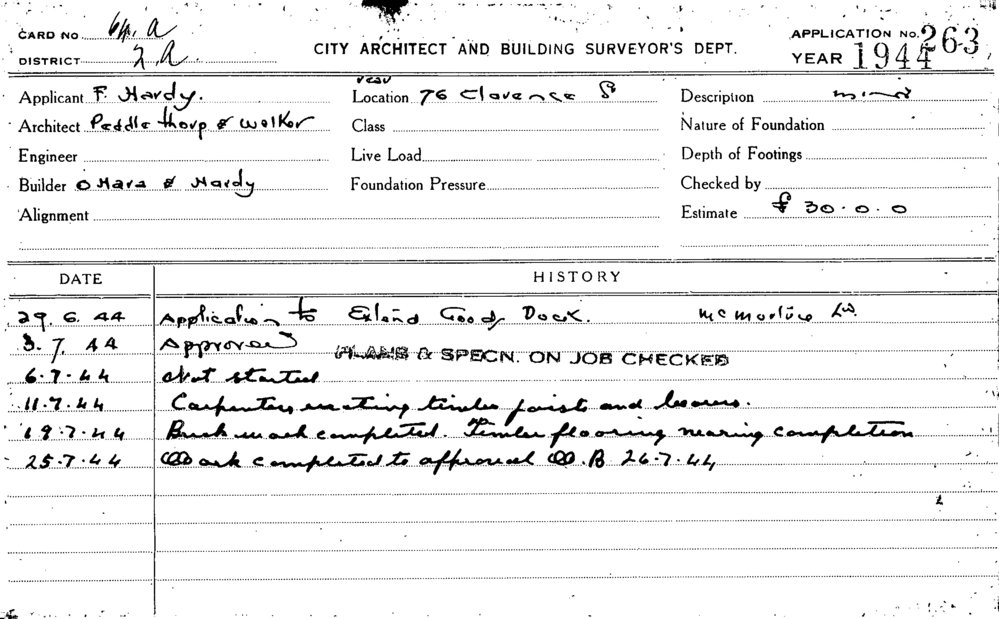 CARD No. 64. A
APPLICATION No. 263
DISTRICT 2.A
CITY ARCHITECT AND BUILDING SURVEYOR'S DEPT.
YEAR 1944
Applicant F. Hardy.
rear
Location 76 Clarence St
Description minor
Architect Peddle thorp & walker
Class
Nature of Foundation
Engineer
Live Load
Depth of Footings
Builder O Hara & Hardy
Foundation Pressure
Checked by
Alignment
Estimate £ 30.0.0
DATE HISTORY
29.6.44 Application to Extend Goods Dock.
3.7.44 Approved PLANS & SPECN. ON JOB CHECKED
6.7.44 Not started
11.7.44 Carpenters erecting timber joists and bearers.
19.7.44 Brick work completed. Timber flooring nearing completion
25.7.44 Work completed to approval W.B 26.7.44